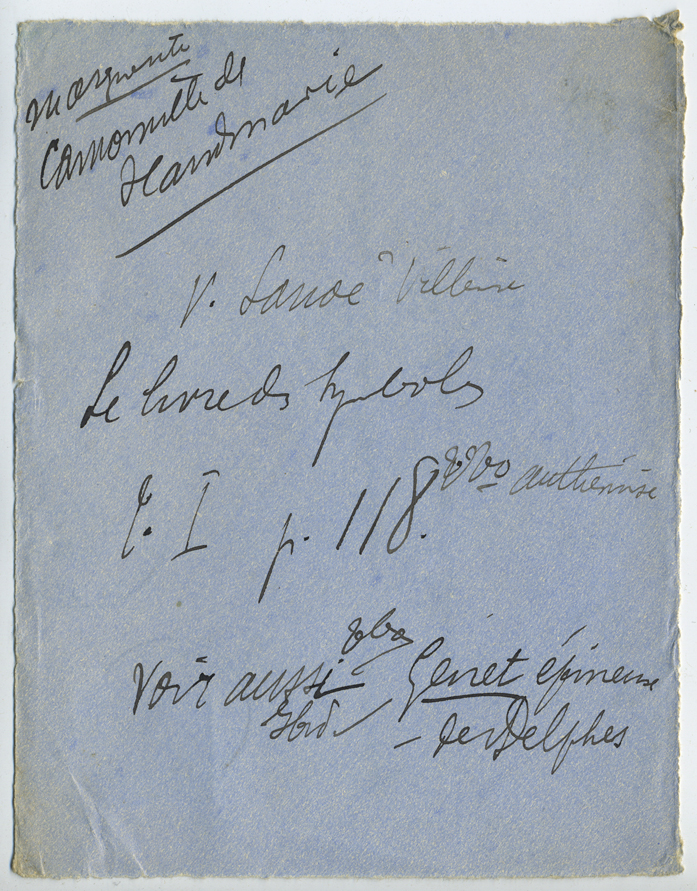 Marguerite
Camomille de
V. Lanoë Villène
Le livre des Symboles
T. I p. 118. Vbo anthémise
Voir aussi vbo Genêt épineux
Ibid - de Delphes